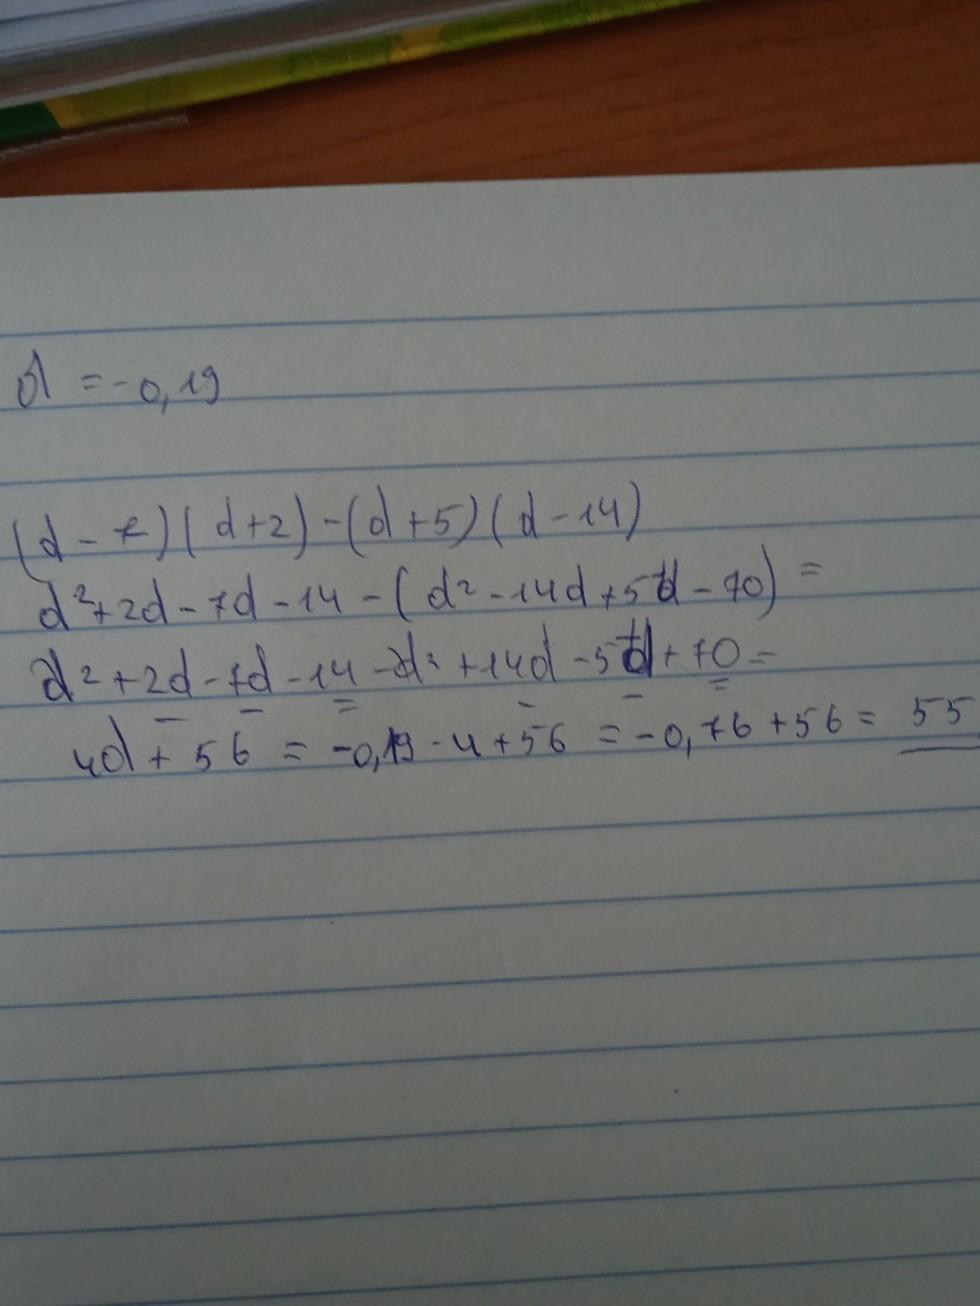 d = -0,19
(d - 7)(d+2) - (d+5)(d-14)
d²+2d-7d-14-(d²-14d+5d-70) =
d²+2d-7d-14-d²+14d-5d+70=
4d+56 = -0,19·4+56 = -0,76+56 = 55,